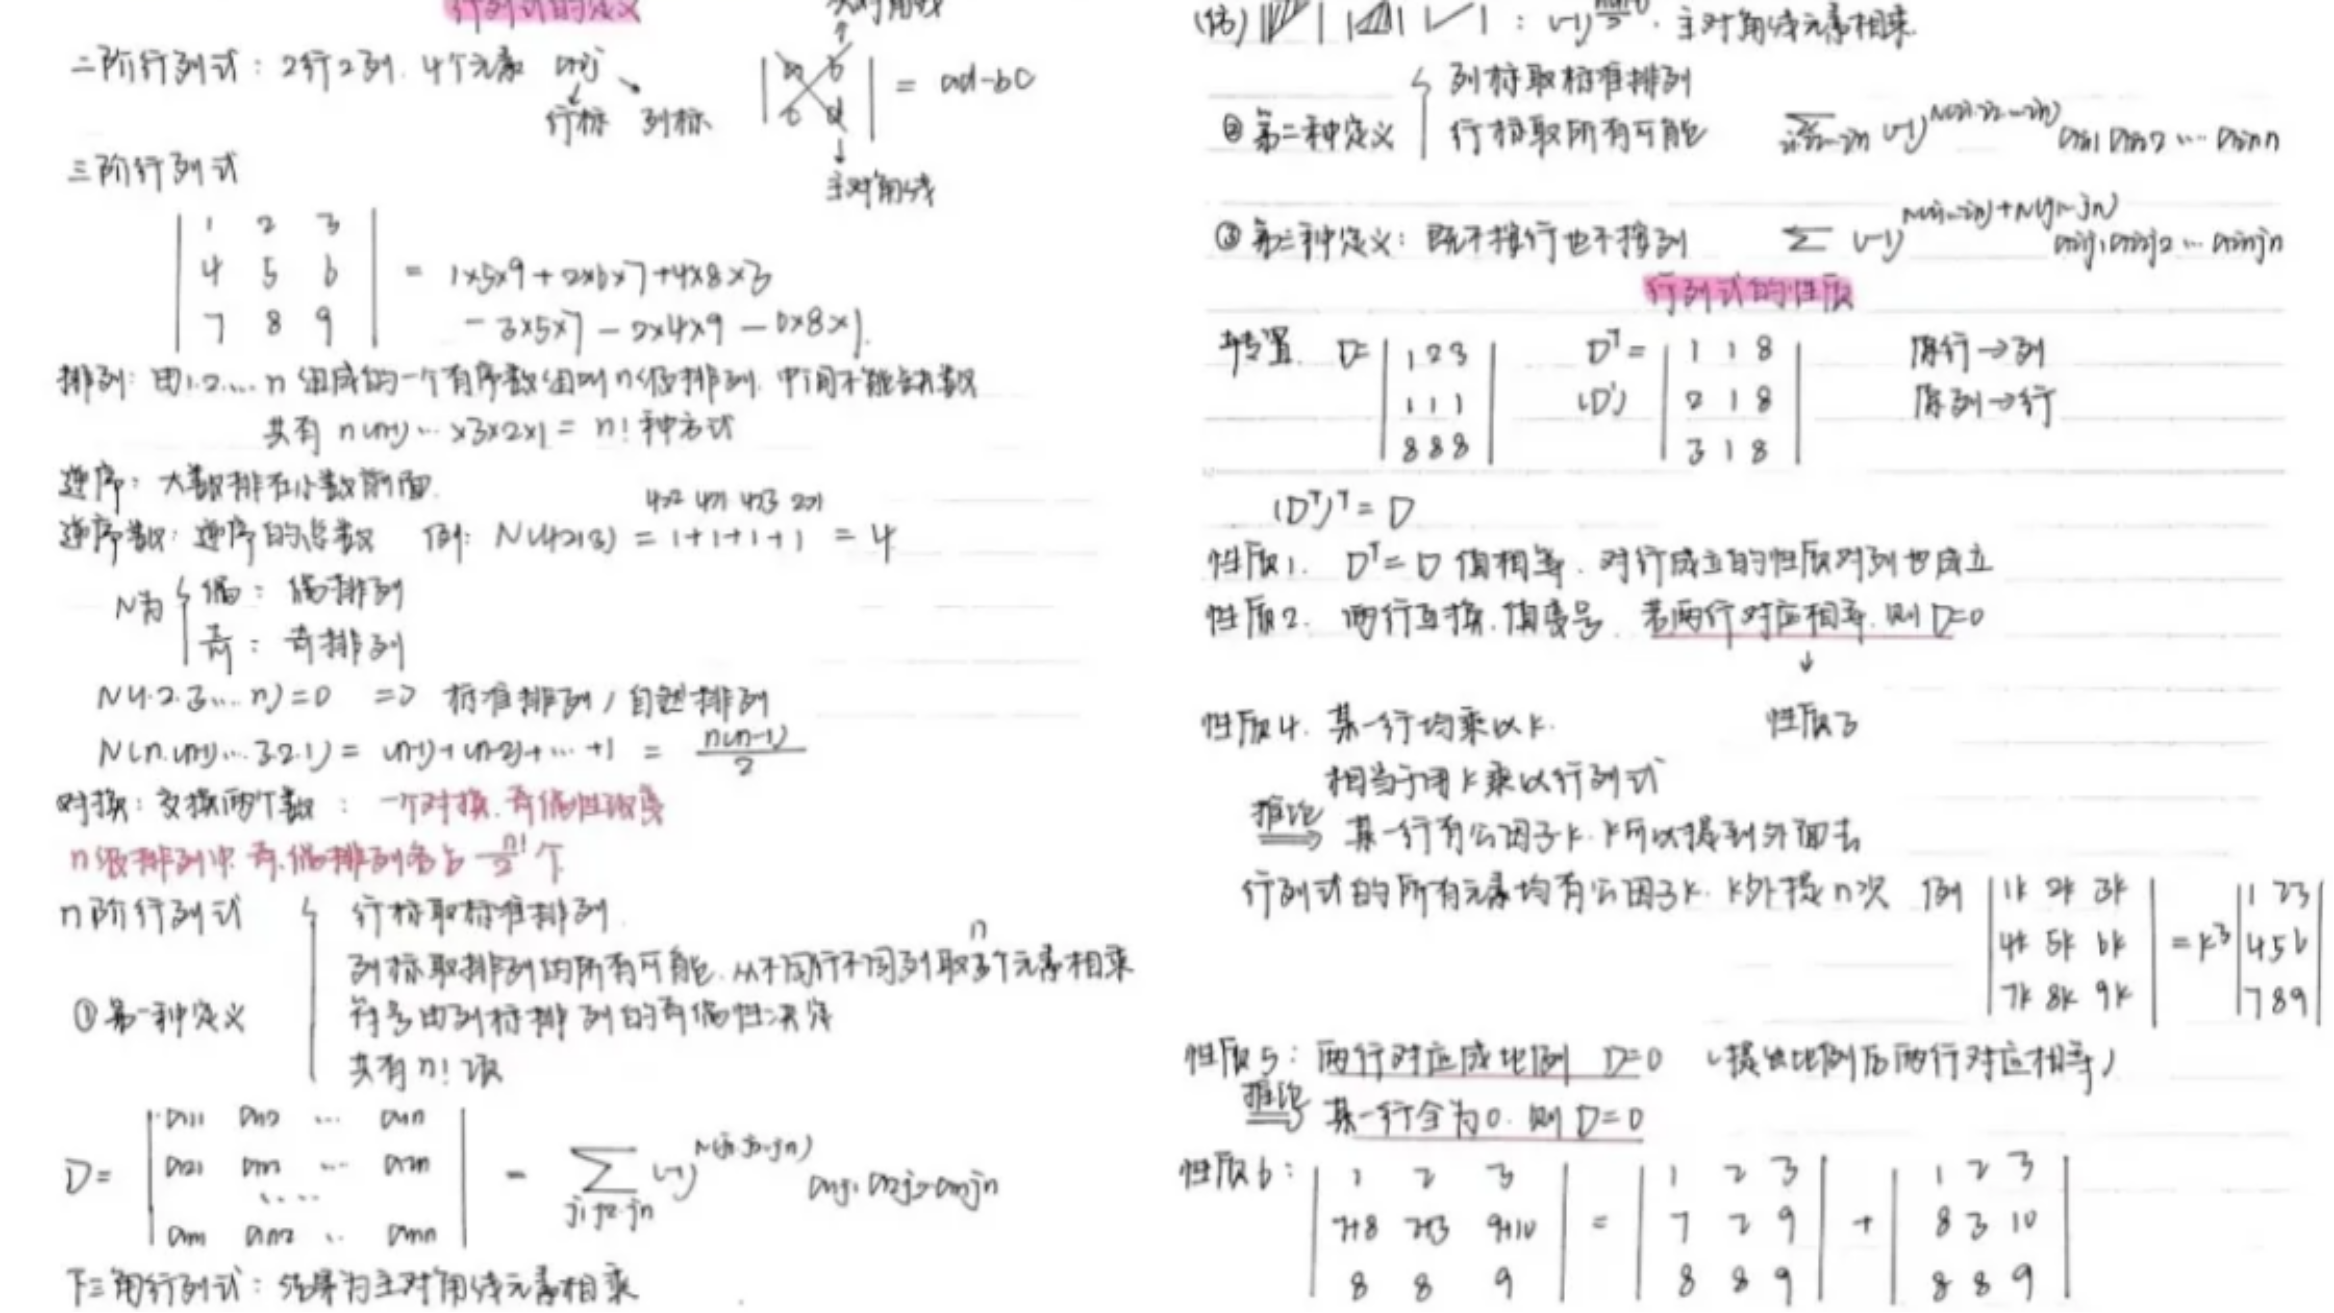 行列式的定义
二阶行列式：2行2列，4个元素 aij
行标 列标
|a b; c d| = ad-bc
主对角线
三阶行列式
1 2 3
4 5 6 = 1×5×9+2×6×7+4×8×3
7 8 9 -3×5×7-2×4×9-6×8×1.
排列：由1.2.... n 组成的一个有序数组叫n级排列，中间不能缺数
共有 n(n-1)… ×3×2×1 = n! 种方式
逆序：大数排在小数前面.
4>2 4>1 4>3 2>1
逆序数：逆序的总数 例：N(4213) = 1+1+1+1 = 4
N为 偶：偶排列
奇：奇排列
N(1.2.3… n)=0 => 标准排列/自然排列
N(n.(n-1)… 3.2.1) = (n-1)+(n-2)+…+1 = n(n-1)/2
对换：交换两个数：一个对换，奇偶性改变
n级排列中，奇、偶排列各占 n!/2 个
n阶行列式 行标取标准排列.
n
列标取排列的所有可能，从不同行不同列取3个元素相乘
①第一种定义 符号由列标排列的奇偶性决定
共有n! 项
a11 a12 … a1n
D= a21 a22 … a2n = ∑ (-1)^N(j1.j2…jn) a1j1 a2j2…anjn
....
j1j2…jn
an1 an2 … ann
下三角行列式：结果为主对角线元素相乘
: (-1)^n(n-1)/2. 主对角线元素相乘
列标取标准排列
②第二种定义 行标取所有可能 ∑ i1i2…in (-1)^N(i1.i2…in) ai11 ai22 … ainn
③第三种定义：既不按行也不按列 ∑ (-1)^N(i1…in)+N(j1…jn) ai1j1 ai2j2 … ainjn
行列式的性质
转置. D= |1 2 3; 1 1 1; 8 8 8| D^T= (D') |1 1 8; 2 1 8; 3 1 8| 原行→列
原列→行
(D^T)^T = D
性质1. D^T = D 值相等. 对行成立的性质对列也成立
性质2. 两行互换，值变号. 若两行对应相等，则D=0
↓
性质3
性质4. 某一行均乘以k.
相当于用k乘以行列式
推论 某一行有公因子k. k可以提到外面去
行列式的所有元素均有公因子k. k外提n次 例 |1k 2k 3k; 4k 5k 6k; 7k 8k 9k| = k^3 |1 2 3; 4 5 6; 7 8 9|
性质5：两行对应成比例 D=0 (提出比例后两行对应相等)
推论 某一行全为0. 则D=0
性质6：|1 2 3; 7+8 2+3 9+10; 8 8 9| = |1 2 3; 7 2 9; 8 8 9| + |1 2 3; 8 3 10; 8 8 9|